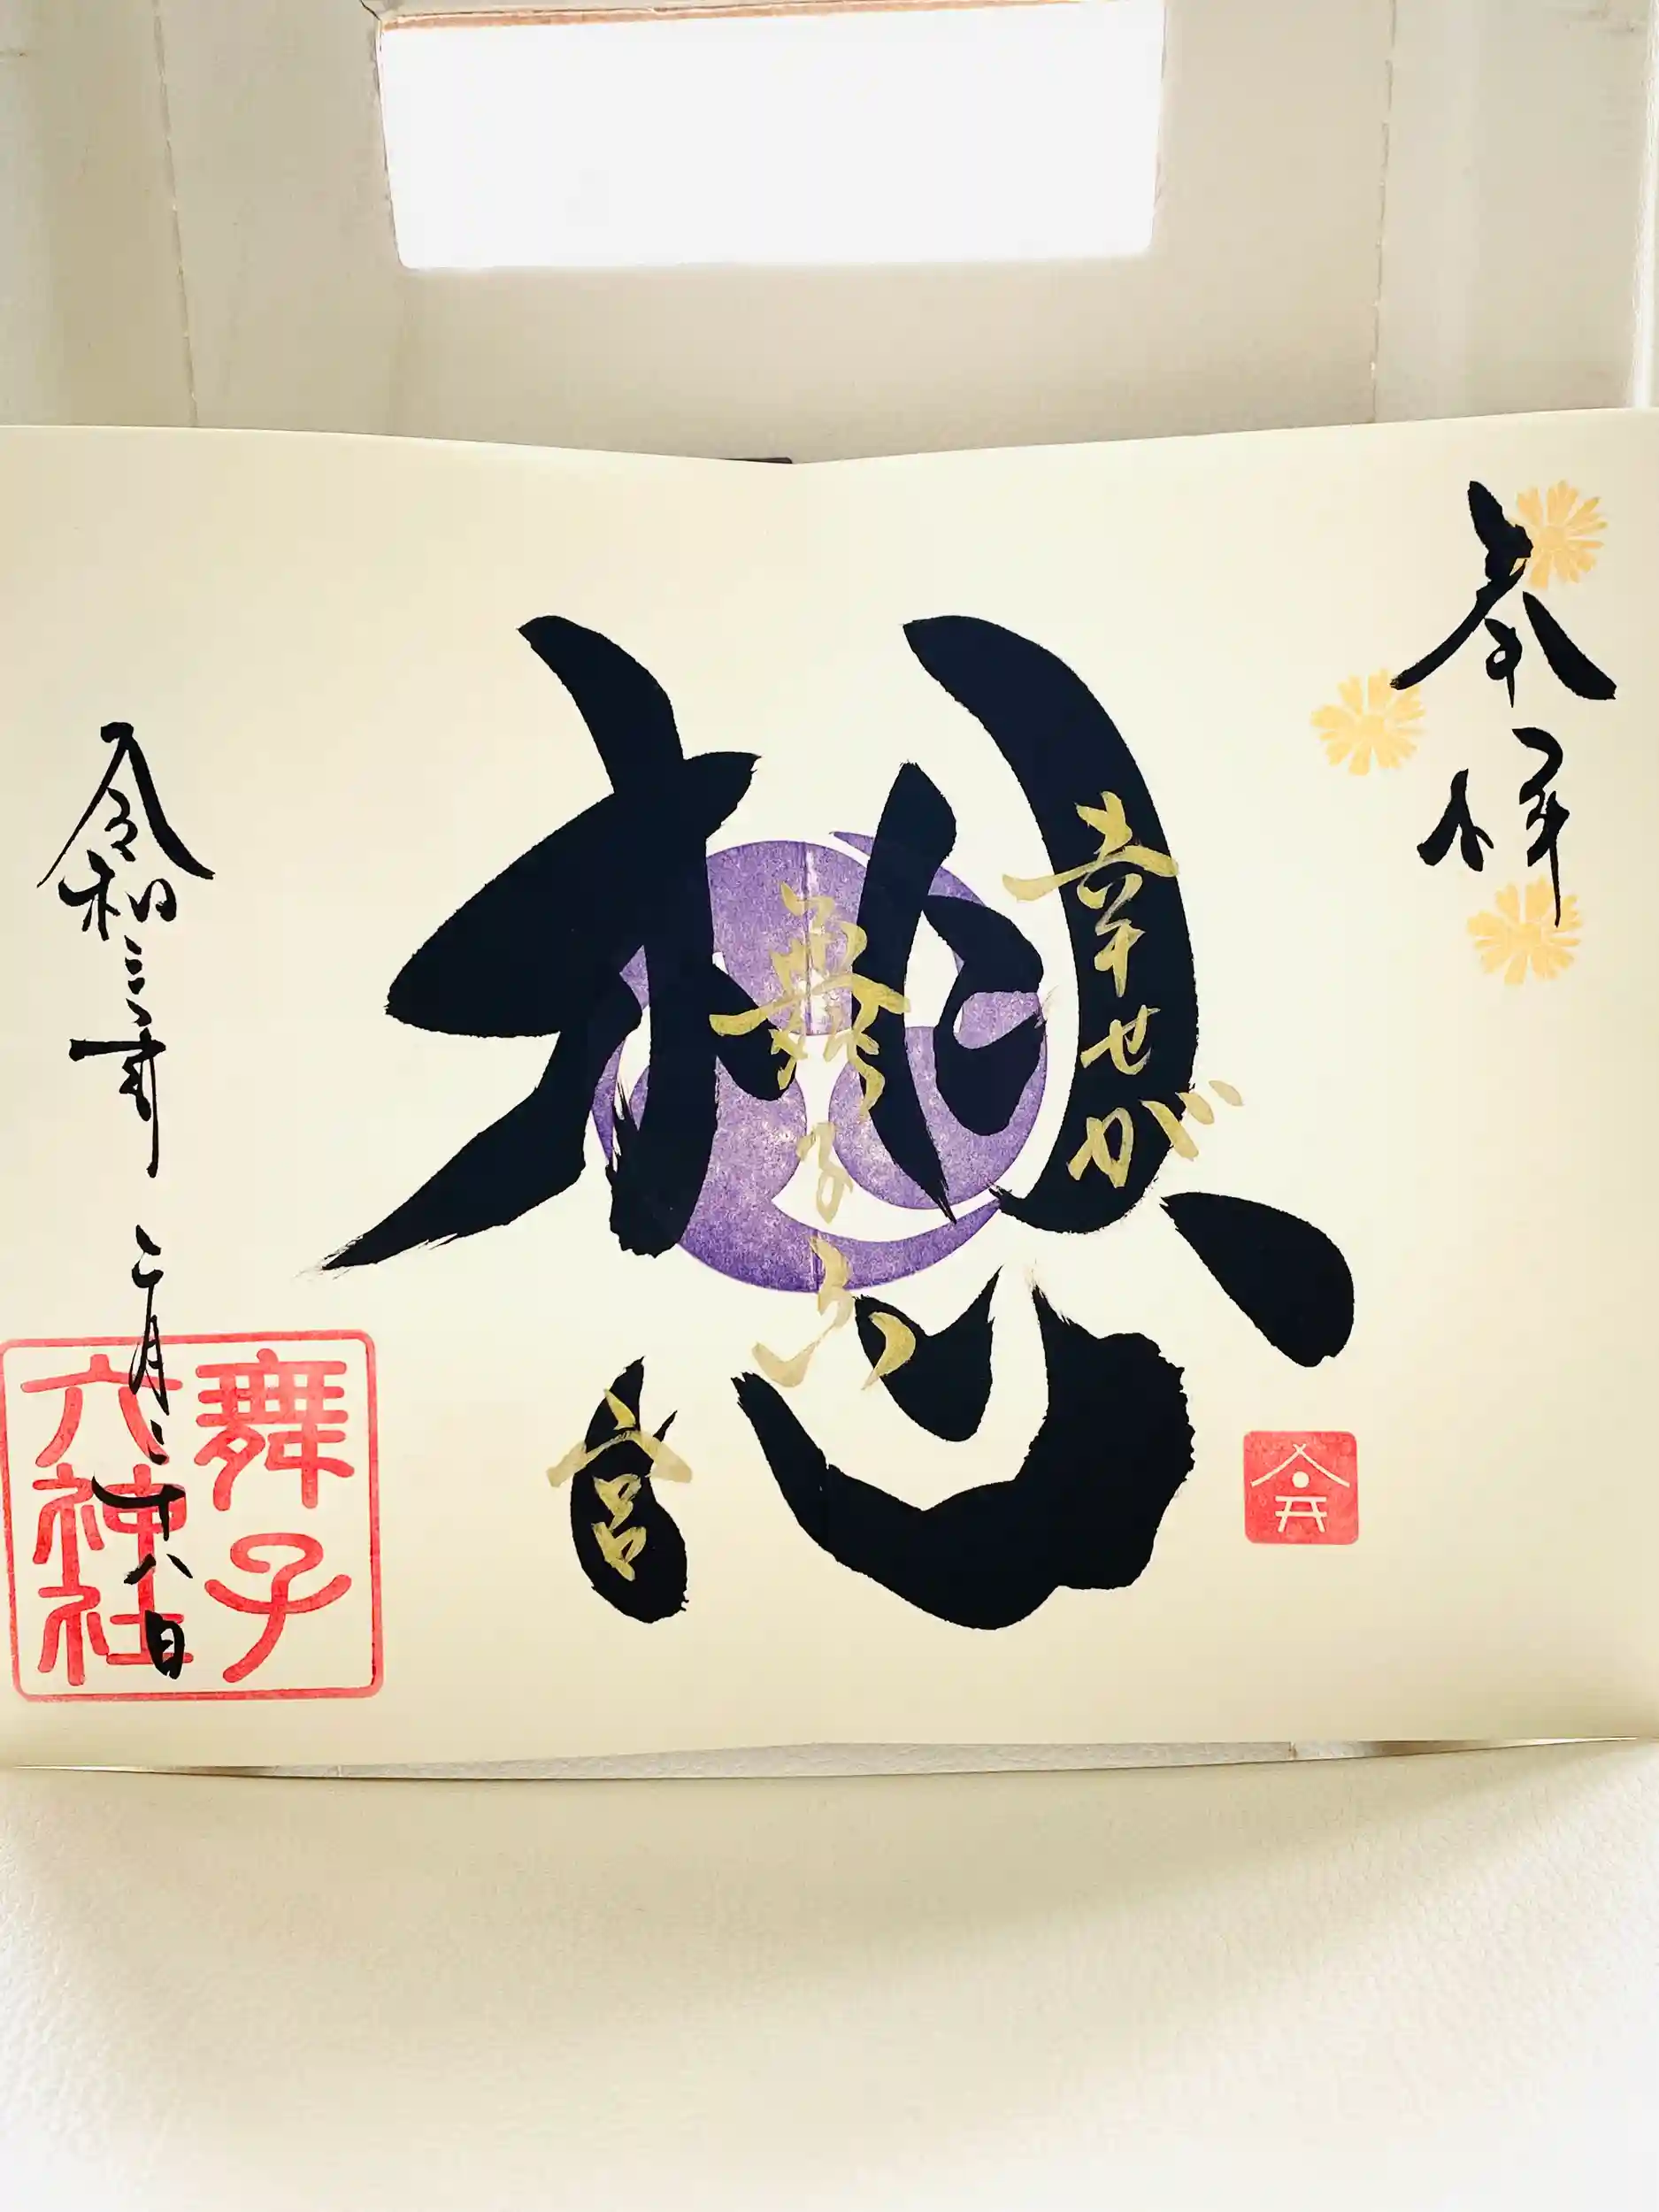 奉拝
想
幸せが
舞子
宮
令和三年二月二十八日
舞子
六神社